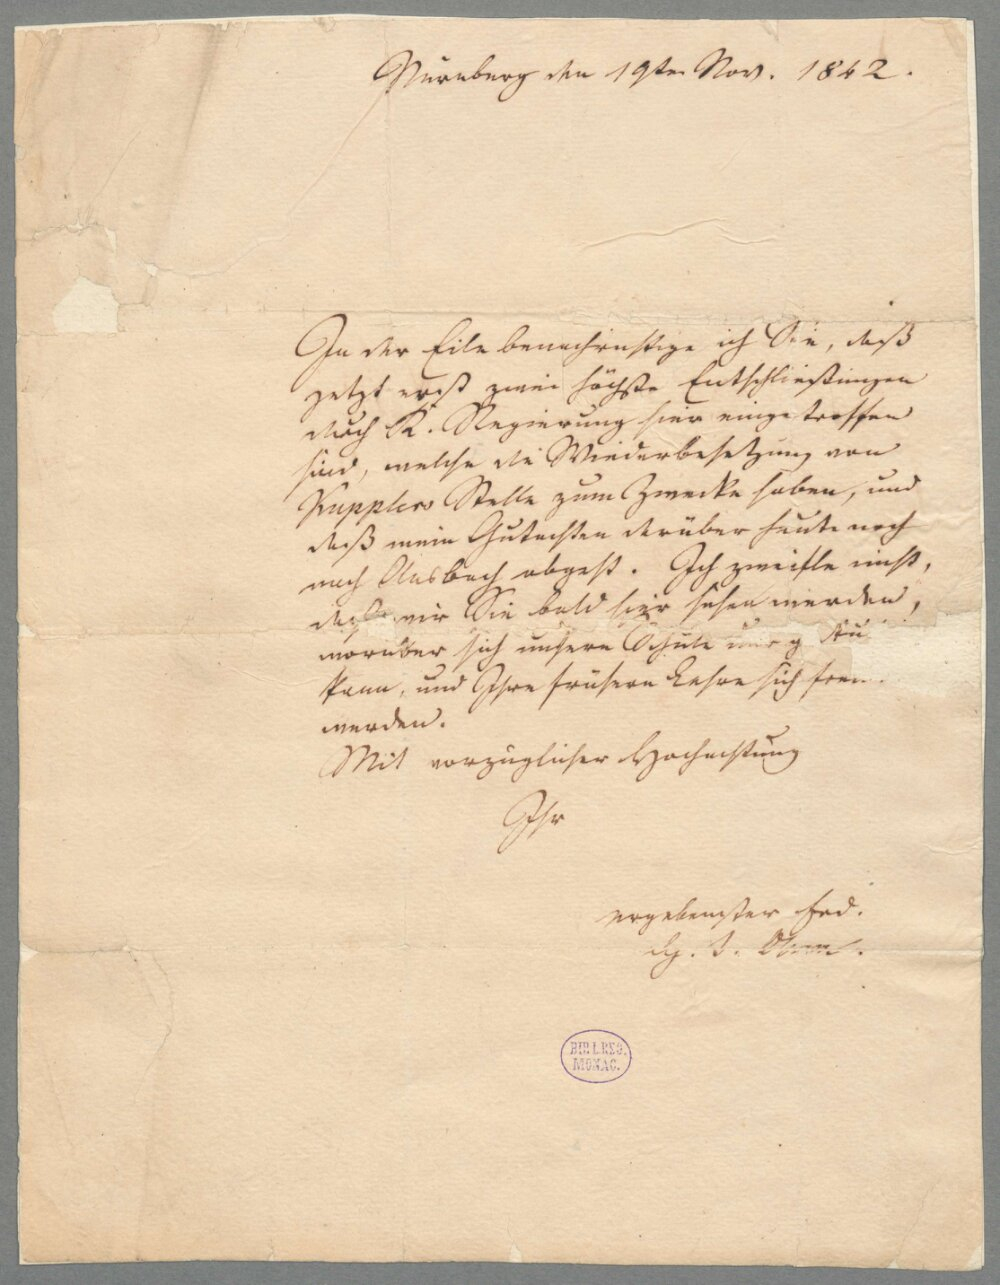 Nürnberg den 19ten Nov. 1842.
In der Eile benachrichtige ich Sie, daß
jetzt erst zwei höchste Entschließungen
durch K. Regierung hier eingetroffen
sind, welche die Wiederbesetzung von
Kupplers Stelle zum Zwecke haben, und
daß mein Gutachten darüber heute noch
nach Ansbach abgeht. Ich zweifle nicht,
daß wir Sie bald hier sehen werden,
worüber sich unsere Schule
kann, und Ihre frühern Lehrer sich freuen
werden.
Mit vorzüglicher Hochachtung
Ihr
ergebenster Frd.
Dr. Ohm.
BIBL.REG.
MONAC.